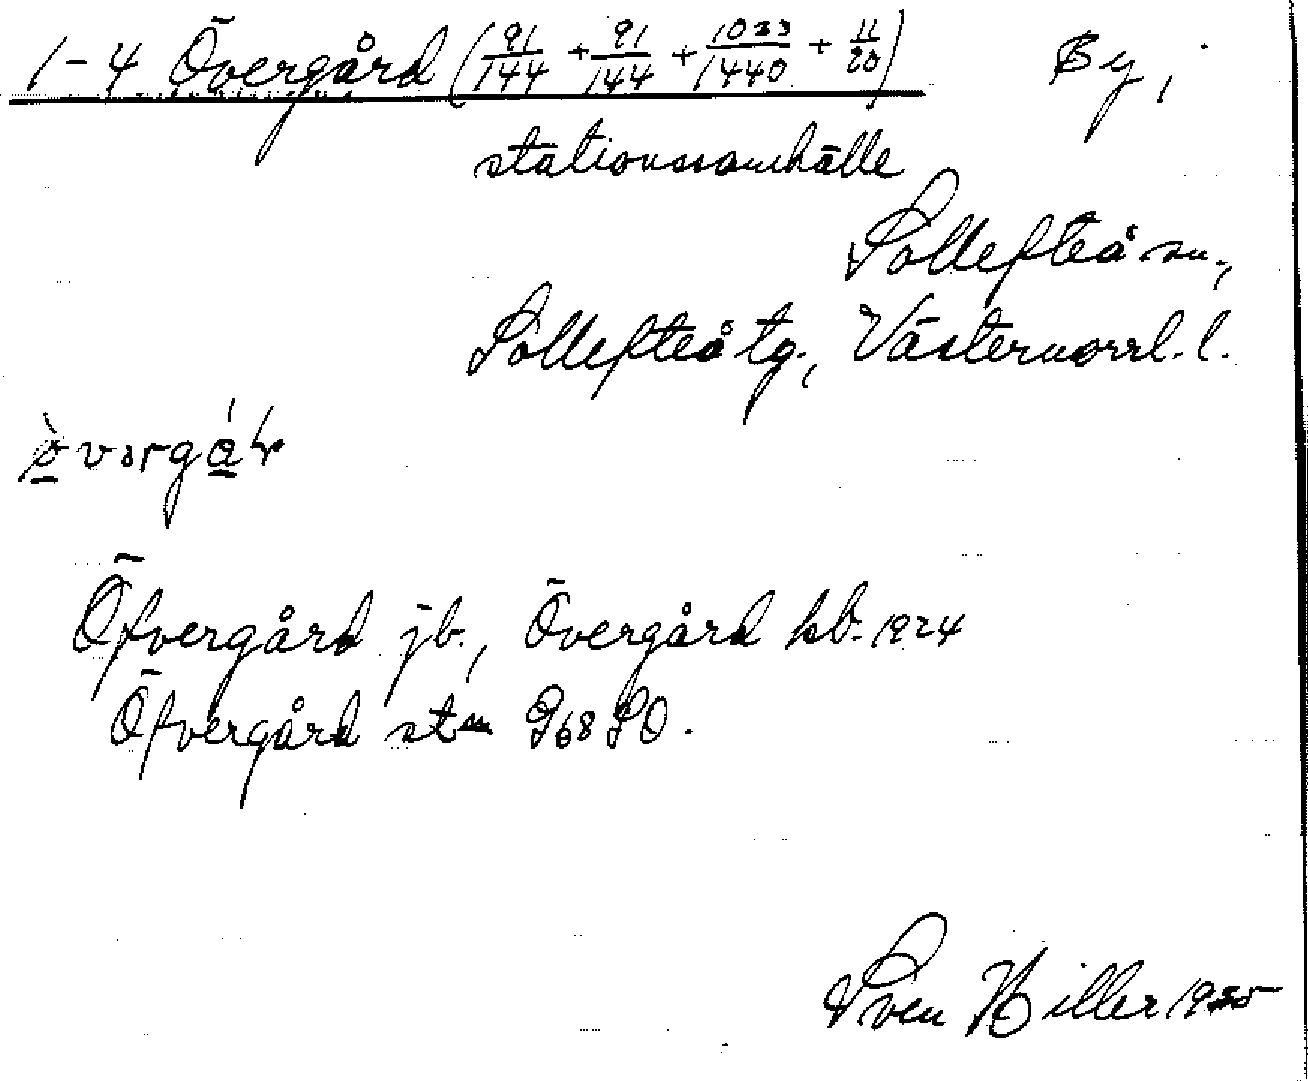 1-4 Övergård (91/144 + 91/144 + 1023/1440 + 11/20) By,
stationssamhälle
Sollefteå sn.,
Sollefteå tg., Västernorrl. l.
Öfvergård jb., Övergård kb. 1924
Öfvergård st G68 SO.
Sven Hiller 1935